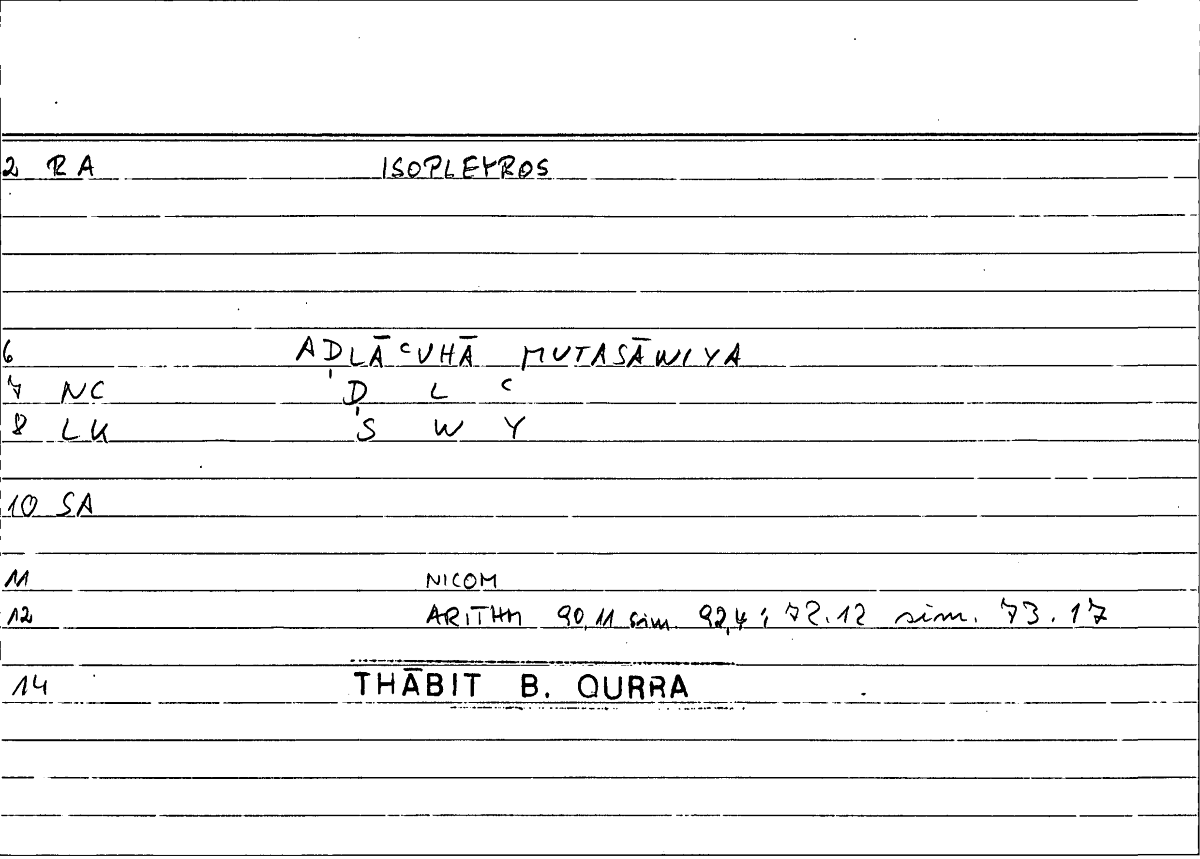 2 RA ISOPLEYROS
6 AḌLĀCUHĀ MUTASĀWIYA
7 NC Ḍ L C
8 LK S W Y
10 SA
11 NICOM
12 ARITHM 90,11 sim. 92,4; 72.12 sim. 73.17
14 THĀBIT B. QURRA